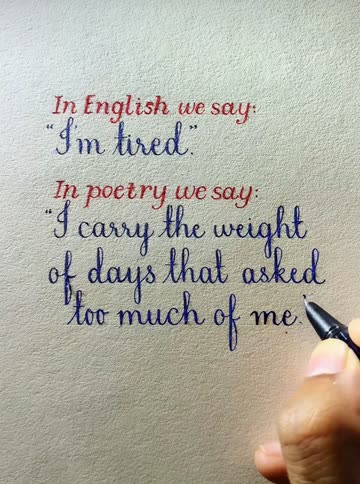 In English we say:
"I'm tired."
In poetry we say:
"I carry the weight
of days that asked
too much of me.